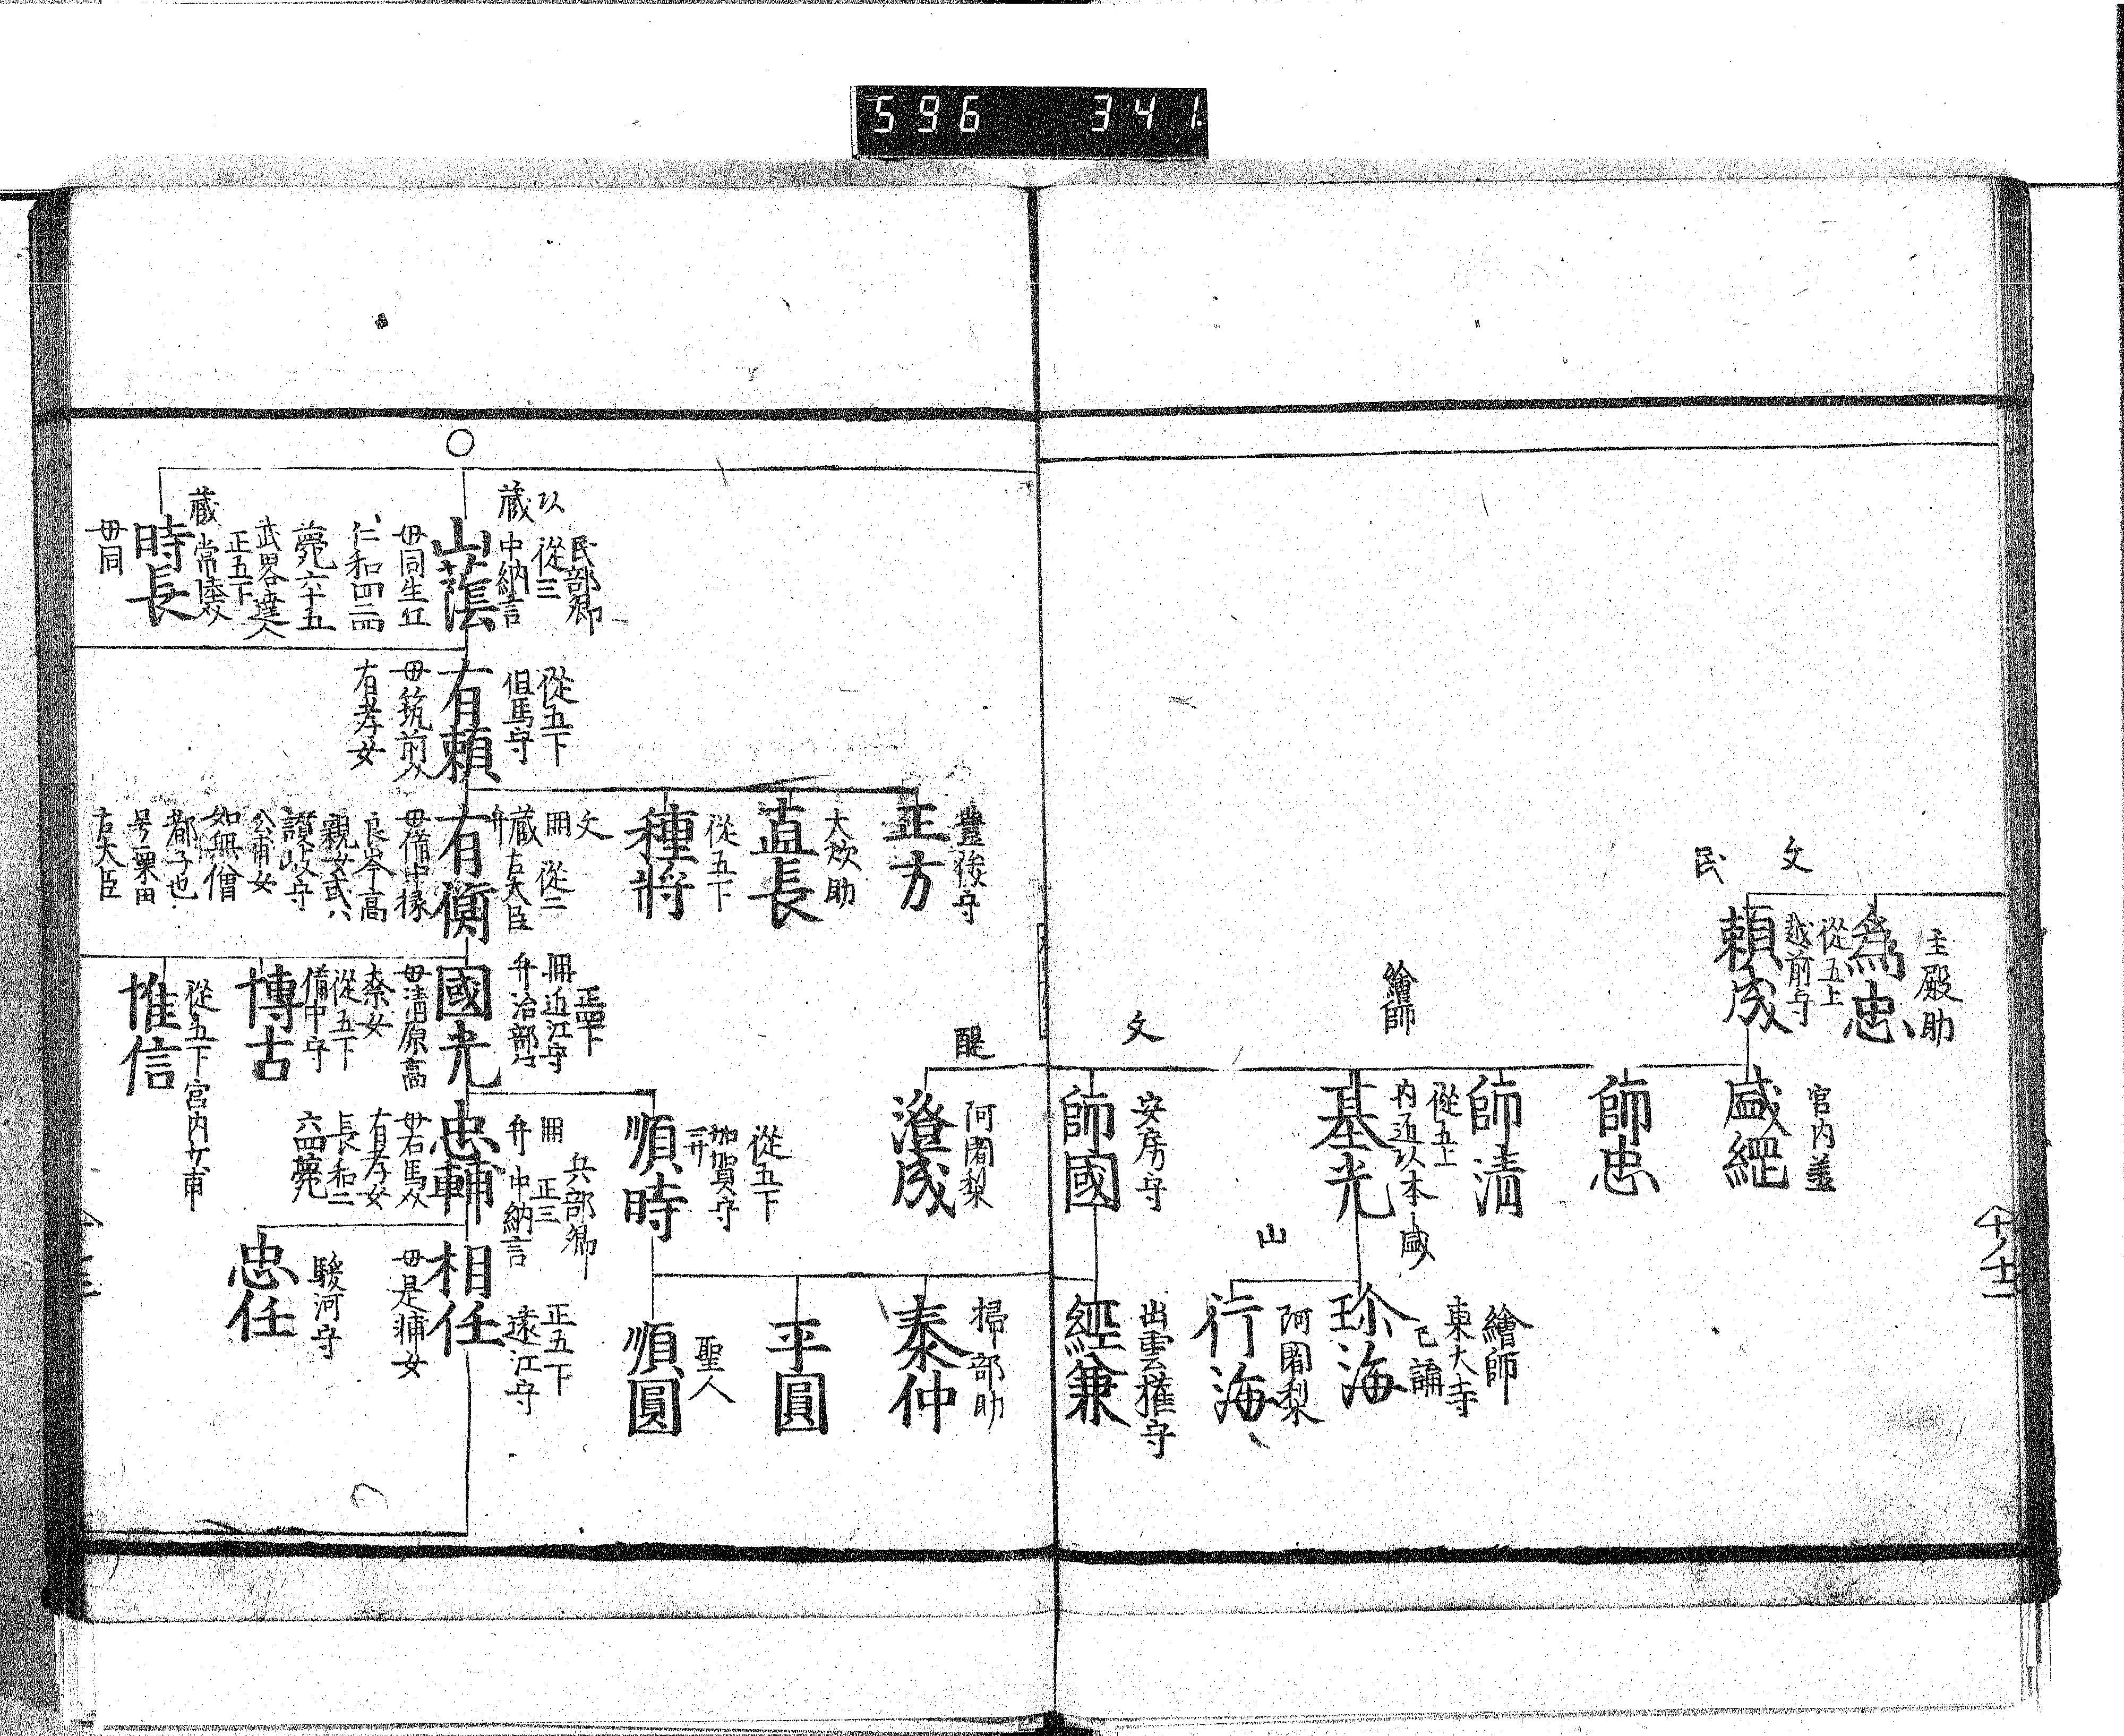 596 341
主殿助
為忠
文
從五上
越前守
民
頼成
宮内
盛經
師忠
師清
繪師
從五上
基光
繪師
東大寺
已講
珎海
山
阿闍梨
行海
文
安房守
師國
出雲權守
經兼
醍
阿闍梨
澄成
民部卿
以 從三
蔵 中納言
山蔭
母同生
仁和四二四
薨六十五
武畧達人
正五下
蔵 常陸
時長
母同
從五下
但馬守
有頼
母筑前
有孝女
豊後守
正方
大炊助
直長
從五下
種將
文
冊 從二
蔵 右大臣
弁
有衡
母備中掾
良岑高
親女
讃岐守
公甫女
如無僧
都子也
号粟田
右大臣
正四下
冊近江守
弁治部
國光
母清原高
奈女
從五下
備中守
博古
從五下宮内少甫
惟信
從五下
加賀守
弁
順時
掃部助
泰仲
平圓
聖人
順圓
兵部卿
冊 正三
弁 中納言
忠輔
母右馬
有孝女
長和二
六四薨
正五下
遠江守
相任
母是輔女
駿河守
忠任